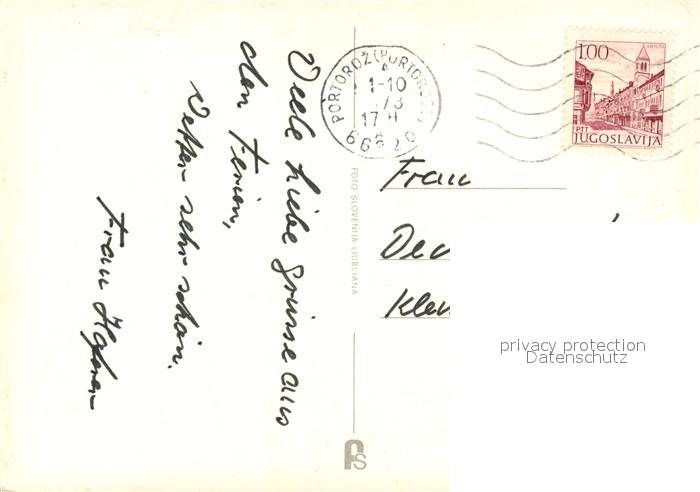 Viele liebe Grüsse aus
den Ferien,
Wetter sehr schön.
Frau
PORTOROŽ (PORTOROSE)
1-10
73
17 H
66320
1.00
PTT
JUGOSLAVIJA
Frau
FOTO SLOVENIJA LJUBLJANA
privacy protection
Datenschutz